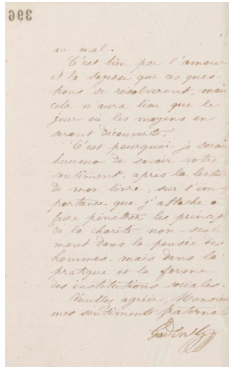 396
au mal.
C'est bien par l'amour
et la sagesse que ces ques-
tions se résolveront, mais
cela n'aura lieu que le
jour où les moyens en
seront découverts.
C'est pourquoi je serai
heureux de savoir votre
sentiment, après la lecture
de mon livre, sur l'im-
portance que j'attache à
faire pénétrer les principes
de la charité non-seule-
ment dans la pensée des
hommes mais dans la
pratique et la forme
des institutions sociales.
Veuillez agréer, Monsieur
mes sentiments fraternels